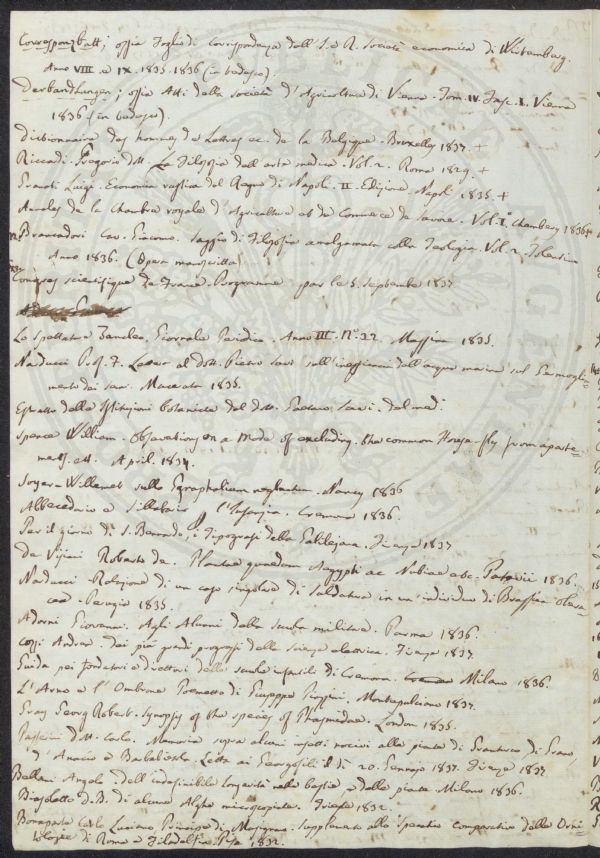 Correspondzbatt; ossia Foglio di Corrispondenza dell'I. e R. Società economica di Wirtemberg.
Anno VIII e IX. 1835. 1836 (in tedesco).
Verhandlungen; ossia Atti della Società d'Agricoltura di Vienna. Tom. IV. Fasc. I. Vienna
1836 (in tedesco).
Dictionnaire des hommes de Lettres ec. de la Belgique. Bruxelles 1837. +
Riccardi. Gregorio dott. La Filosofia dell'arte medica. Vol. 2. Roma 1829. +
Granati Luigi. Economia rustica del Regno di Napoli. II. Edizione Napoli 1835. +
Annales de la Chambre royale d'Agriculture et de Commerce de Savoie. Vol. I° Chambery 1836 +
Brancadori Cav. Giacomo. Saggio di Filosofia amalgamata colla Teologia. Vol. 2. Tolentino
Anno 1836. (Opera manoscritta)
Congres scientifique de France. Programme par le 5. Septembre 1837
Lo Spettatore Zancleo. Giornale Periodico. Anno III. N° 32. Messina 1835.
Narducci Prof. F. Lettera al dott. Pietro Savi sull' dell'acqua marina sul
mento dei semi. Macerata 1835.
Estratto delle Istituzioni botaniche del dott. Gaetano Savi. del med.
Spence William. Observations on a Mode of excluding the common House-fly from aparte-
ments. ett. April. 1834.
Soyer Willemet sullo Gnaphalium neglectum. Nancy 1836
Abbecedario e Sillabario p. l'Infanzia. Cremona 1836.
Per il giorno di S. Bernardo, i Tipografi della Galilejana. Firenze 1837
De Visiani Roberto de. Plantae quaedam Aegypti ac Nubiae etc. Patavii 1836.
Narducci. Relazione di un caso singolare di Saldatura in un individuo di Brassica Olera-
cea. Perugia 1835.
Adorni Giovanni. Agli Alunni della scuola militare. Parma 1836.
Cozzi Andrea. dei più grandi progressi della scienza elettrica. Firenze 1837.
Guida pei fondatori e direttori delle scuole infantili di Cremona. Milano 1836.
L'Arno e l'Ombrone Poemetto di Giuseppe. Montepulciano 1837.
Gray Georg Robert. Synopsis of the species of Phasmidae. London 1835.
Passerini dott. Carlo. Memoria sopra alcuni insetti nocivi alle piante di Granturco di Grano,
d'Arancio e Barbabietole. Letta ai Georgofili il dì 20. Gennajo 1837. Firenze 1837
Bellani Angelo. dell'indefinibile longevità nelle bestie e delle piante Milano 1836.
Biasoletto D. B. di alcune Alghe microscopiche. Trieste 1832.
Bonaparte Carlo Luciano Principe di Musignano. Supplemento allo specchio comparativo delle Orni-
tologie di Roma e Filadelfia Pisa 1832.